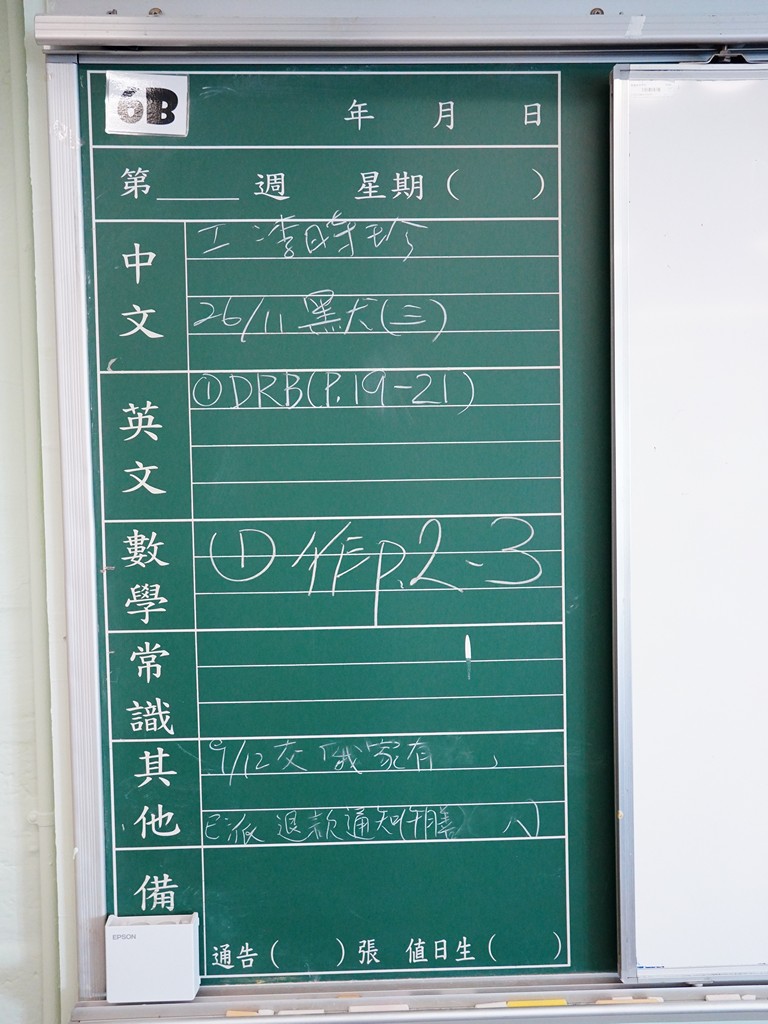 6B
年 月 日
第____週 星期( )
中文
工 李時珍
26/11 黑犬(三)
英文
①DRB(P.19-21)
數學
① 作P.2-3
常識
其他
9/12交「我家有
已派 退款通知(午膳 )
備
EPSON
通告( )張 值日生( )